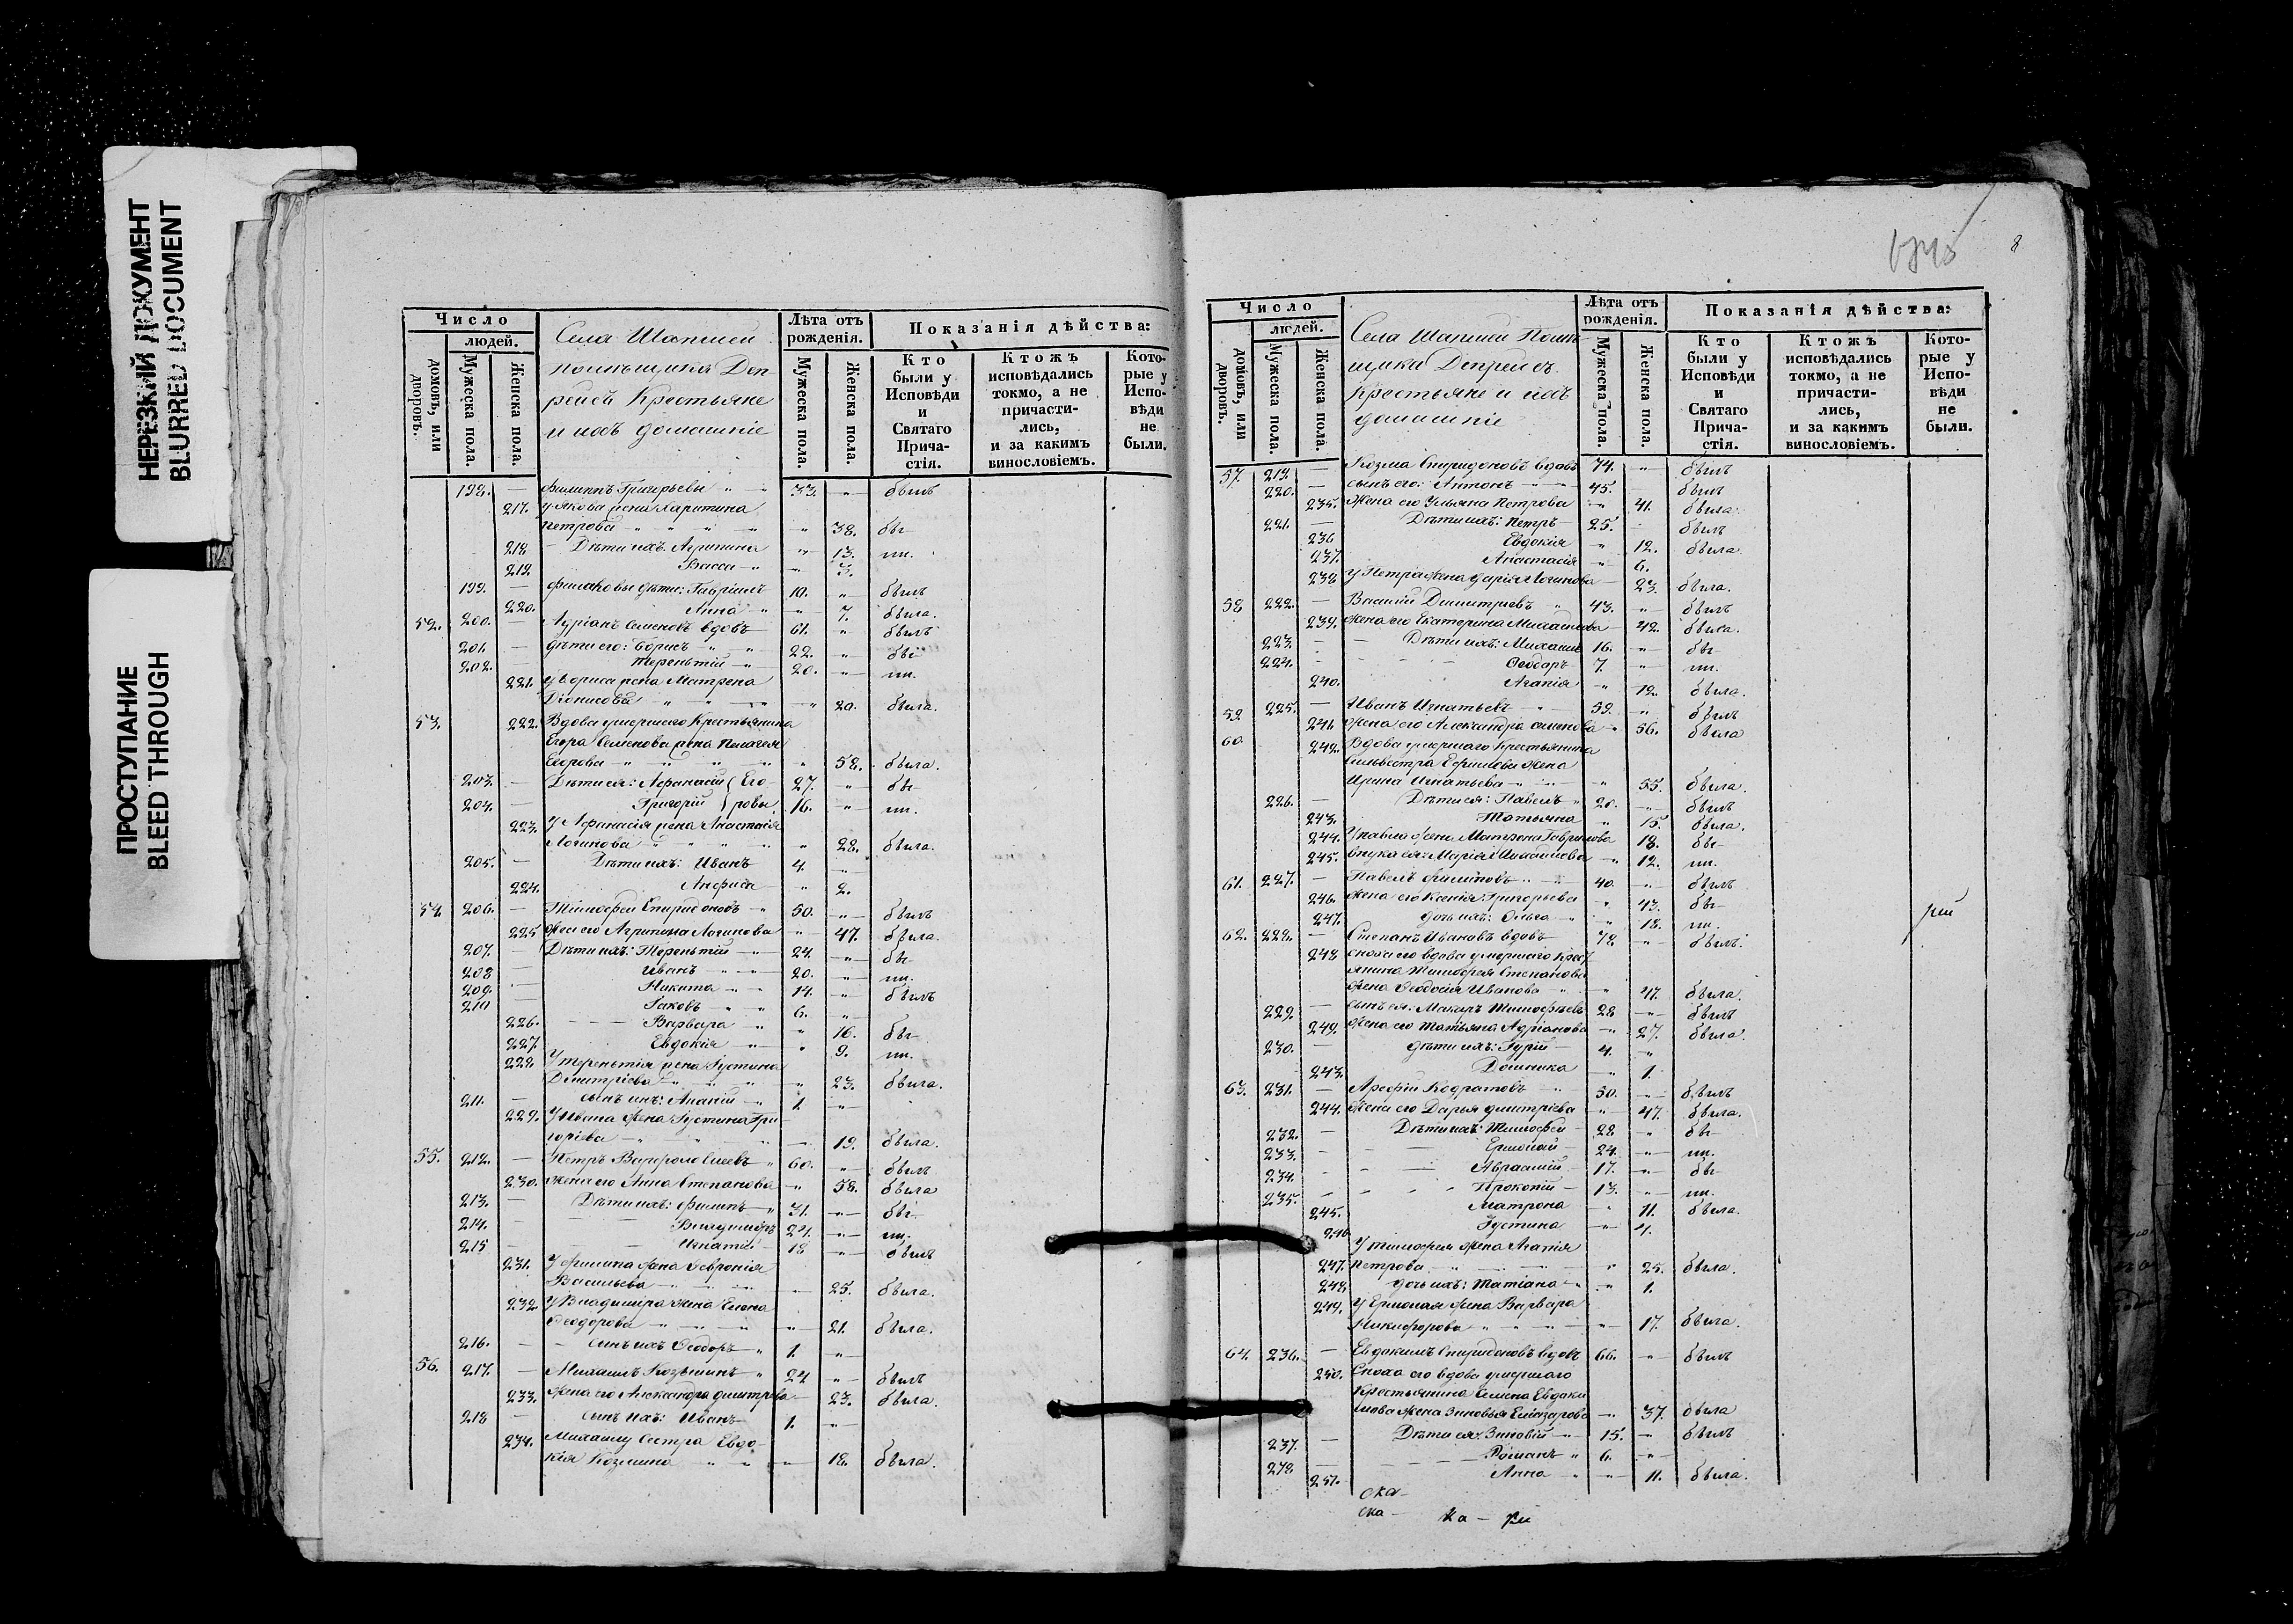 НЕРЕЗКИЙ ДОКУМЕНТ
BLURRED DOCUMENT
ПРОСТУПАНИЕ
BLEED THROUGH
8
Число
людей.
домовъ, или дворовъ.
Мужеска пола.
Женска пола.
Села
помѣщика Деп-
рейсъ Крестьяне
и ихъ домашніе
Лѣта отъ рожденія.
Мужеска пола.
Женска пола.
Показанія дѣйства:
Кто были у Исповѣди и Святаго Прича-стія.
Ктожъ исповѣдались токмо, а не причасти-лись, и за какимъ винословіемъ.
Кото-рые у Испо-вѣди не были.
198. — Филиппъ Григорьевы 33. былъ
217. у Якова жена Харитина
Петрова 38. бы-
218 Дѣти ихъ: Агрипина 13. ли.
219 Васса 3.
199. — Филиповы дѣти: Гавріилъ 10. былъ
220. Анна 7. была.
52. 200. — Адріанъ Семеновъ вдовъ 61. былъ
201. — дѣти его: Борисъ 22. бы-
202. — Терентій 20. ли.
221. у Бориса жена Матрена
Діонисова 20. была.
53. 222. Вдова умершаго Крестьянина
Егора Семенова жена Пелагея
Егорова 58. была.
203. — Дѣти ея: Афанасій Его- 27. бы-
204. — Григорій ровы 16. ли.
223. У Афанасія жена Анастасія
Логинова 28. была.
205. — Дѣти ихъ: Иванъ 4.
224. Анфиса 2.
54. 206. — Тимофей Спиридоновъ 50. былъ
225 жена его Агрипина Логинова 47. была.
207. — Дѣти ихъ: Терентій 24. бы-
208 — Иванъ 20. ли.
209. — Никита 14. былъ
210 — Іаковъ 6.
226. Варвара 16. бы-
227. Евдокія 9. ли.
228 У Терентія жена Іустина
Димитріева 23. была.
211. — сынъ ихъ: Ананій 1.
229. У Ивана жена Іустина Гри-
горіева 19. была.
55. 212. — Петръ Варфоломеевъ 60. былъ
230. жена его Анна Степанова 58. была
213. — Дѣти ихъ: Филипъ 31. бы-
214. — Владимиръ 21. ли.
215 — Игнатій 18 былъ
231. У Филипа жена Февронія
Васильева 25. была.
232. У Владиміра жена Елена
Ѳеодорова 21. была.
216. — сынъ ихъ Ѳеодоръ 1.
56. 217. — Михаилъ Козьминъ 24 былъ
233. жена его Александра Димитріева 23. была.
218 — сынъ ихъ: Иванъ 1.
234. Михаилу Сестра Евдо-
кія Козьмина 18. была.
Число
людей.
домовъ, или дворовъ.
Мужеска пола.
Женска пола.
Села Помѣ-
щика Депрейсъ
Крестьяне и ихъ
домашніе
Лѣта отъ рожденія.
Мужеска пола.
Женска пола.
Показанія дѣйства:
Кто были у Исповѣди и Святаго Прича-стія.
Ктожъ исповѣдались токмо, а не причасти-лись, и за какимъ винословіемъ.
Кото-рые у Испо-вѣди не были.
57. 219. — Козма Спиридоновъ вдовъ 74. былъ
220. — сынъ его: Антонъ 45. былъ
235. жена его Ульяна Петрова 41. была.
221. — Дѣти ихъ: Петръ 25. былъ
236 Евдокія 12. была.
237. Анастасія 6.
238 У Петра жена Дарія Логинова 23. была.
58 222. — Василій Димитріевъ 43. былъ
239. жена его Екатерина Михаилова 42. была.
223. — Дѣти ихъ: Михаилъ 16. бы-
224. Ѳеодоръ 7. ли.
240. Агапія 12. была.
59. 225. — Иванъ Игнатьевъ 59. былъ
241. жена его Александра 56. была
60. 242. Вдова умершаго Крестьянина
Сильвестра Ефимова жена
Ирина Игнатьева 55. была.
226. — Дѣти ея: Павелъ 20. былъ
243. Татьяна 15. была.
244. У Павла жена Матрона Гаврилова 18. бы-
245. внука ея: Марія Михаилова 12. ли.
61. 227. — Павелъ Филиповъ 40. былъ
246. жена его Ксенія Григорьева 43. бы-
247. дочь ихъ: Ольга 18. ли.
62. 228. — Степанъ Ивановъ вдовъ 78 былъ.
248 сноха его вдова умершаго Крест-
янина Тимофея Степанова
жена Ѳеодосія Иванова 47. была.
229. — сынъ ея: Макаръ Тимофеевъ 28 былъ
249. жена его Татьяна Адріанова 27. была.
230. — дѣти ихъ: Гурій 4.
243. Домника 1.
63. 231. — Арефій Кодратовъ 50. былъ
244. жена его Дарья Димитріева 47. была.
232. — Дѣти ихъ: Тимофей 28 бы-
233. — Ермолай 24. ли.
234. Аврамій 17. бы-
235. Прокопій 13. ли.
245. Матрона 11. была.
246 Іустина 4.
У Тимофея жена Агапія
247. Петрова 25. была.
248 дочь ихъ: Татіана 1.
249. У Ермолая жена Варвара
Никифорова 17. была.
64. 236. — Евдокимъ Спиридоновъ вдовъ 66. былъ
250. Сноха его вдова умершаго
Крестьянина Семена Евдоки
мова жена Зиновья Елиазарова 37. была
237. — Дѣти ея: Зиновій 15. былъ
238 — Романъ 6.
251. Анна 11. была.
рей
ска-
ска- ка- рей